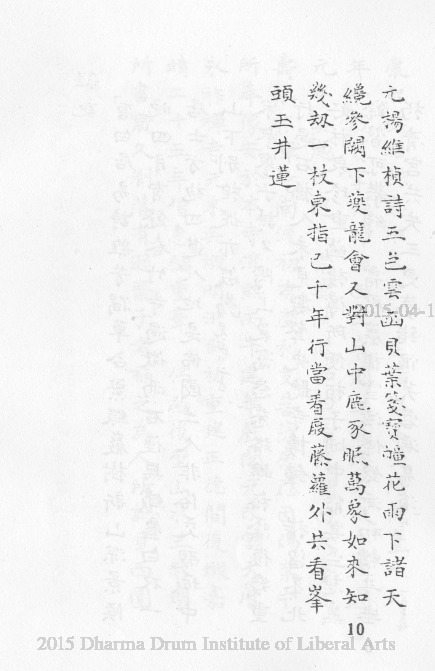 元楊維楨詩五色雲函貝葉箋寶幢花雨下諸天
纔參闕下夔龍會又對山中鹿豕眠萬象如來知
幾劫一枝東指已千年行當着屐藤蘿外共看峯
頭玉井蓮
10
2015-04-1
2015 Dharma Drum Institute of Liberal Arts